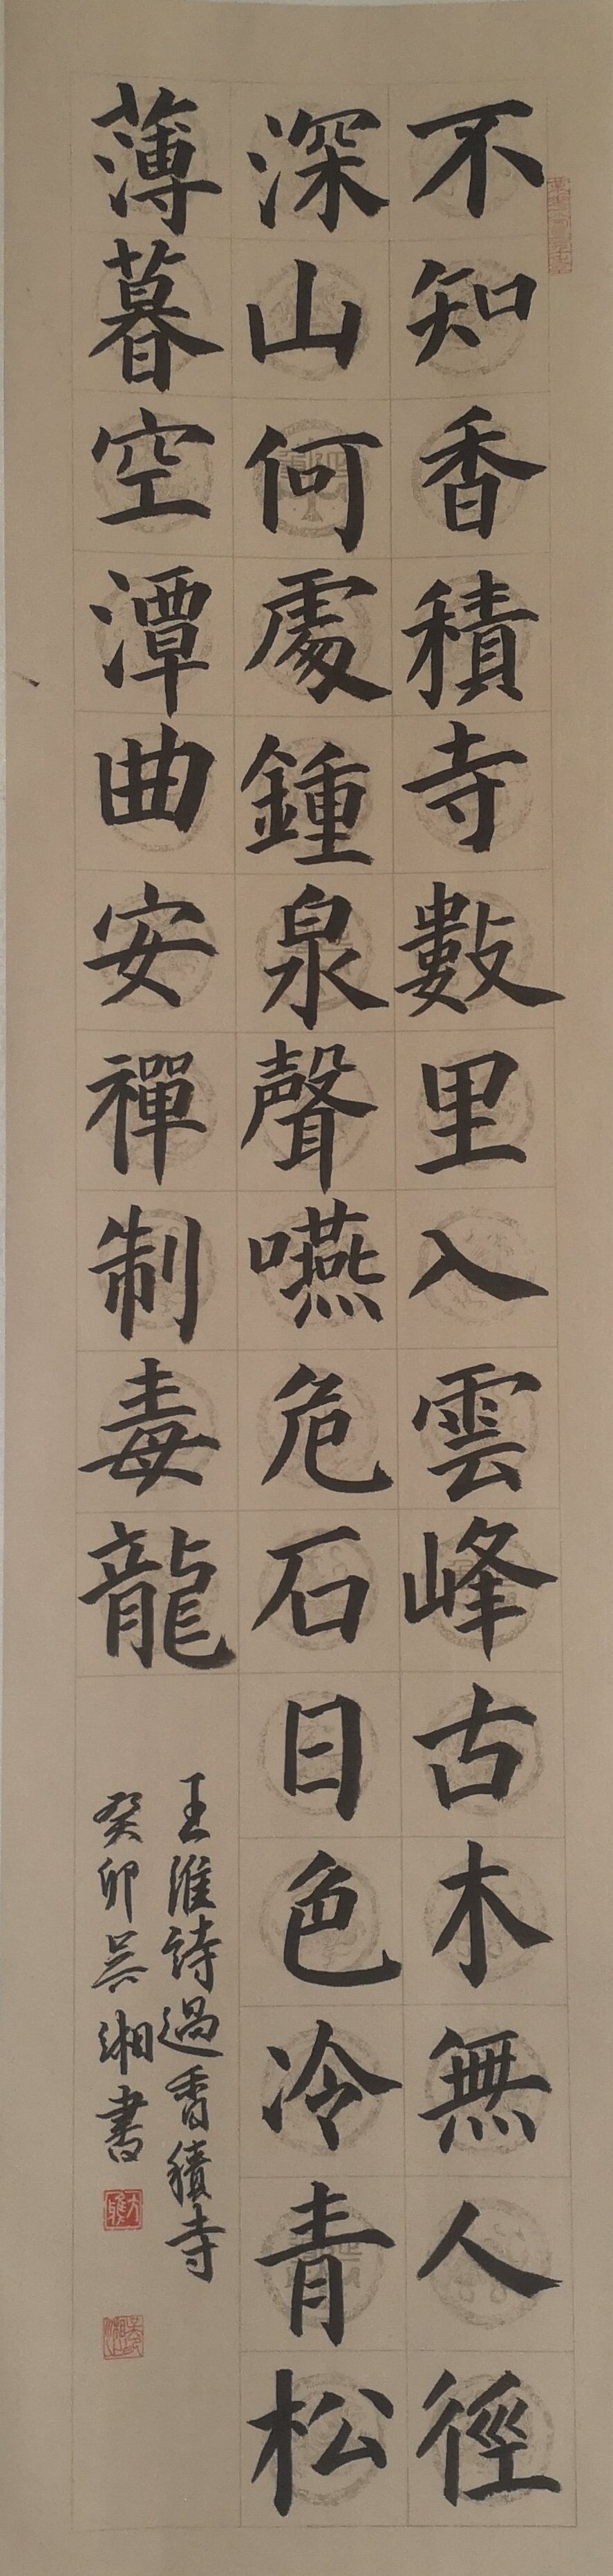 不知香積寺數里入雲峰古木無人徑
深山何處鍾泉聲嚥危石日色冷青松
薄暮空潭曲安禪制毒龍
王維詩過香積寺
癸卯吳湘書